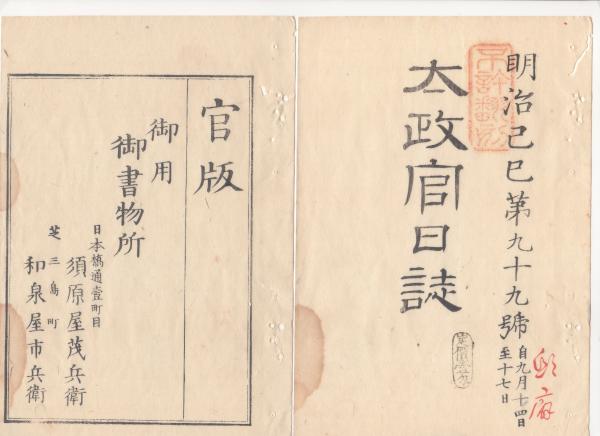 明治己巳第九十九號 自九月十四日至十七日
太政官日誌
不許翻刻
官版
御用
御書物所
日本橋通壹町目
須原屋茂兵衛
芝三島町
和泉屋市兵衛